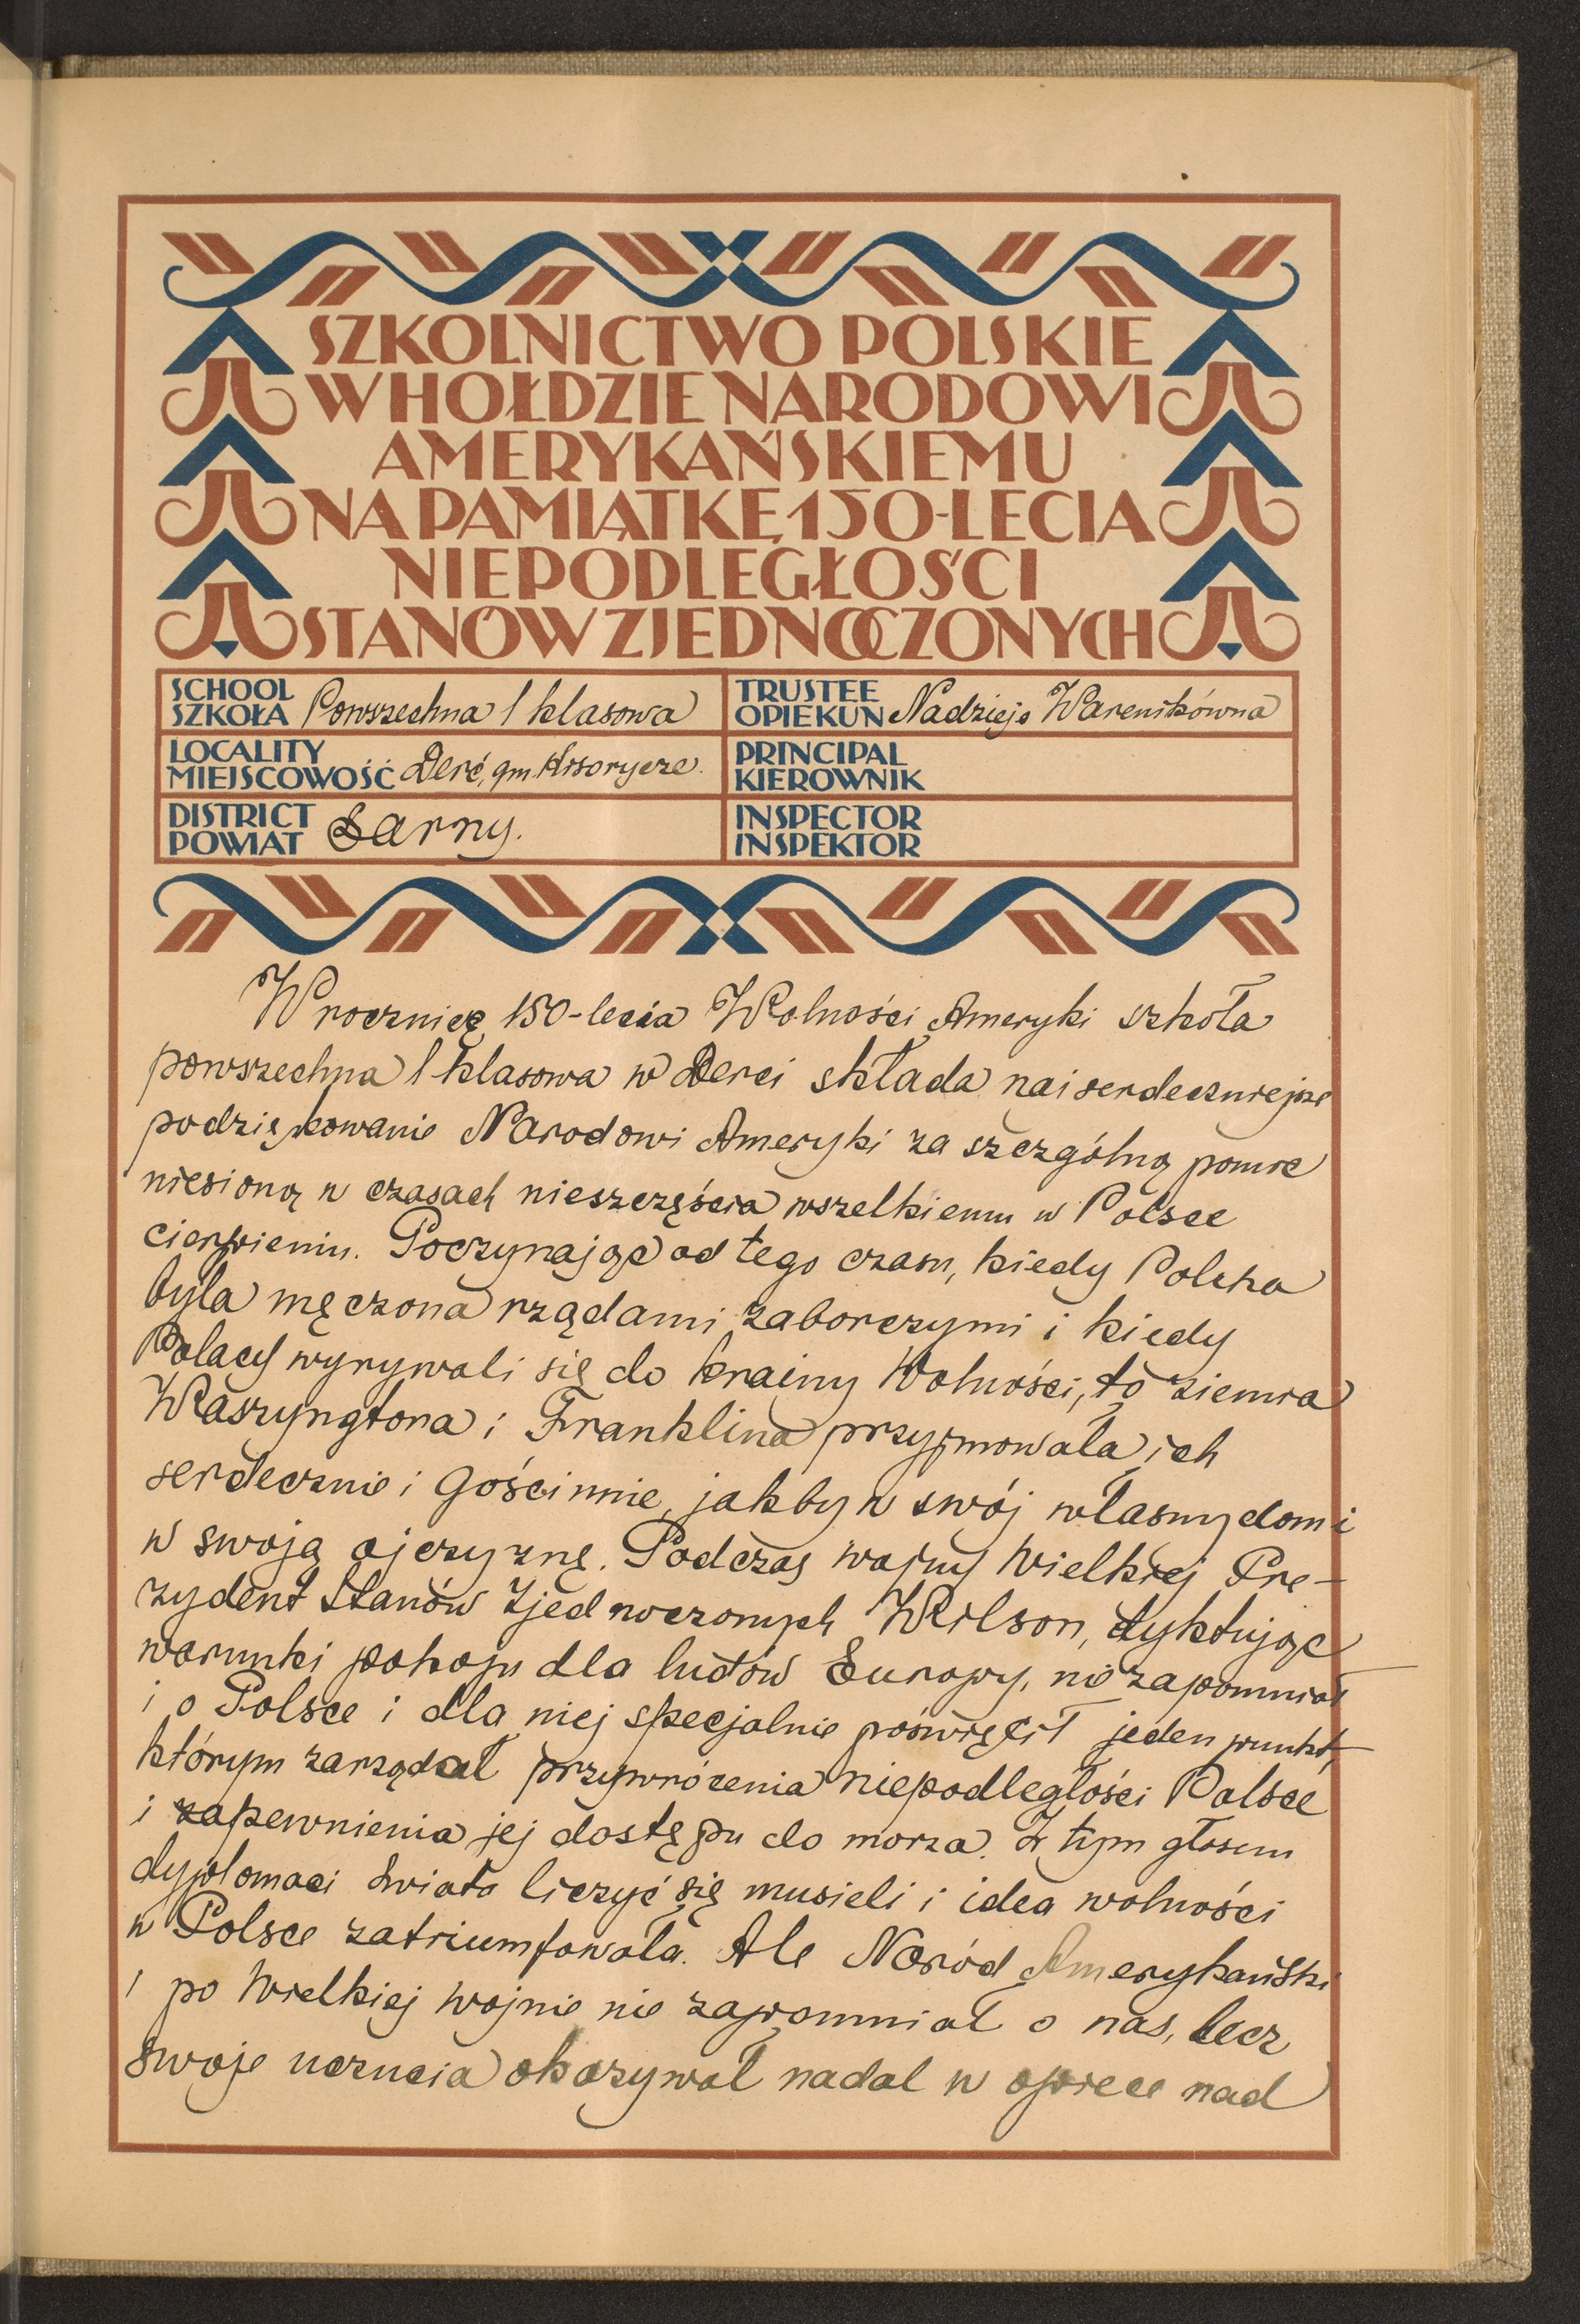 SZKOLNICTWO POLSKIE
W HOŁDZIE NARODOWI
AMERYKAŃSKIEMU
NA PAMIĄTKĘ 150-LECIA
NIEPODLEGŁOŚCI
STANÓW ZJEDNOCZONYCH
SCHOOL
SZKOŁA Powszechna 1 klasowa
TRUSTEE
OPIEKUN Nadzieja Warenikówna
LOCALITY
MIEJSCOWOŚĆ Derć, gm. Kisorycze.
PRINCIPAL
KIEROWNIK
DISTRICT
POWIAT Sarny.
INSPECTOR
INSPEKTOR
W rocznicę 150-lecia Wolności Ameryki szkoła
powszechna 1 klasowa w Derci składa najserdeczniejsze
podziękowanie Narodowi Ameryki za szczgólną pomoc
niesioną w czasach nieszczęścia wszelkiemu w Polsce
cierpieniu. Poczynając od tego czasu, kiedy Polska
była męczona rządami zaborczymi i kiedy
Polacy wyrywali się do krainy Wolności, to ziemia
Waszyngtona i Franklina przyjmowała ich
serdecznie i gościnnie, jakby w swój własny dom i
w swoją ojczyznę. Podczas wojny Wielkiej Pre-
zydent Stanów Zjednoczonych Wilson, dyktując
warunki pokoju dla ludów Europy, nie zapomniał
i o Polsce i dla niej specjalnie poświęcił jeden punkt,
którym zarządał przywrócenia niepodległości Polsce
i zapewnienia jej dostępu do morza. Z tym głosem
dyplomaci świata liczyć się musieli i idea wolności
w Polsce zatriumfowała. Ale Naród Amerykański
i po Wielkiej Wojnie nie zapomniał o nas, lecz
swoje uczucia okazywał nadal w opiece nad